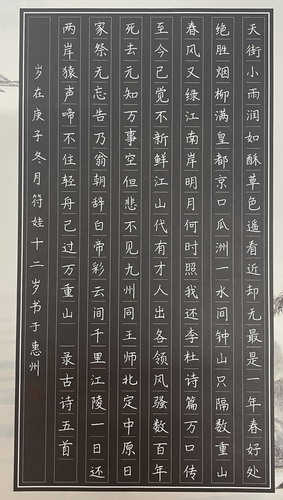 天街小雨润如酥草色遥看近却无最是一年春好处
绝胜烟柳满皇都京口瓜洲一水间钟山只隔数重山
春风又绿江南岸明月何时照我还李杜诗篇万口传
至今已觉不新鲜江山代有才人出各领风骚数百年
死去元知万事空但悲不见九州同王师北定中原日
家祭无忘告乃翁朝辞白帝彩云间千里江陵一日还
两岸猿声啼不住轻舟已过万重山 录古诗五首
岁在庚子冬月符娃十二岁书于惠州